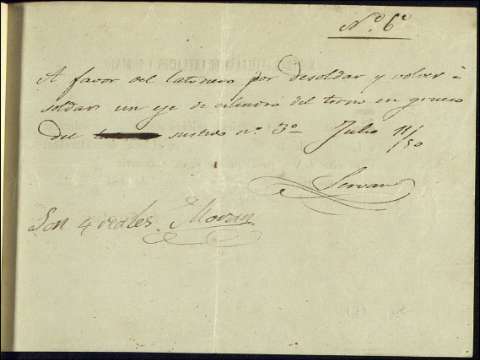 N.º 6º
A favor del latonero por desoldar y volver á
soldar un eje de cilindro del torno en grueso
del sustro nº 3º Julio 11/50
Servan
Son 4 reales. Moran